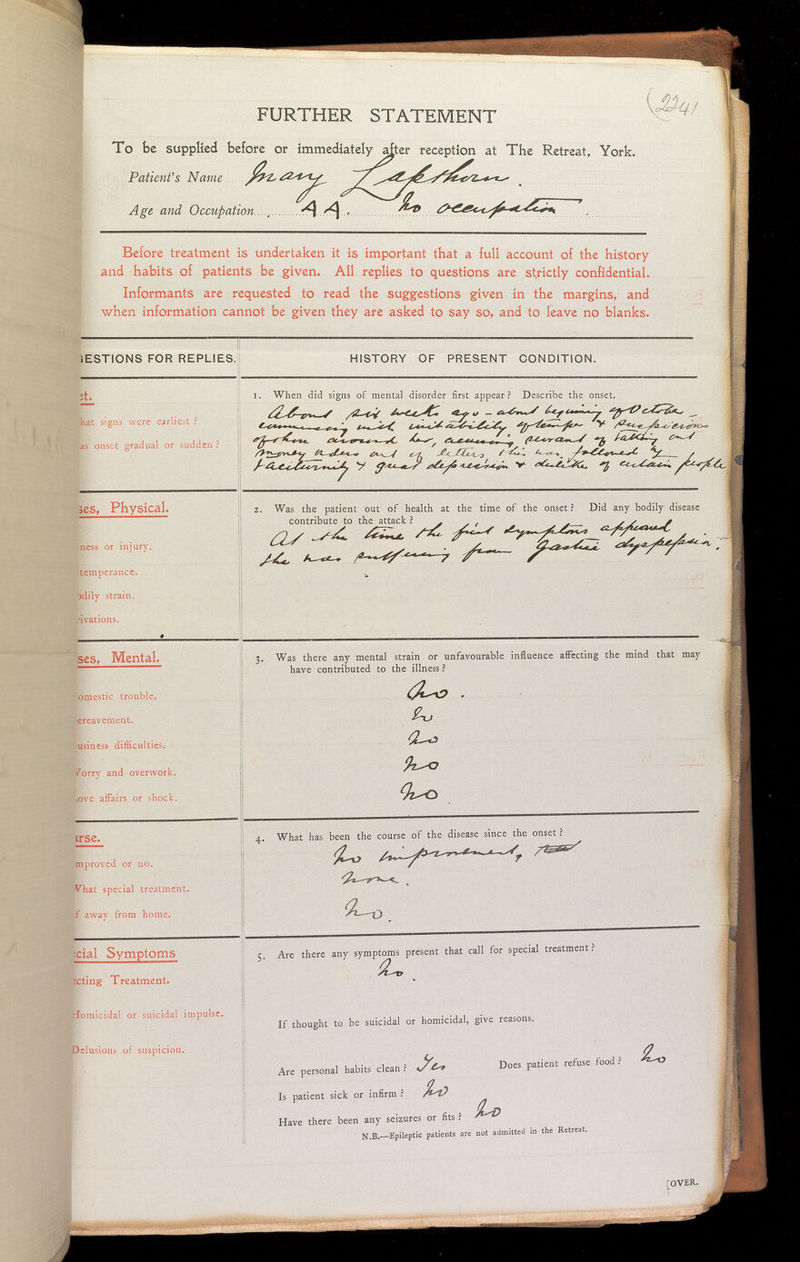 (2241
FURTHER STATEMENT
To be supplied before or immediately after reception at The Retreat, York.
Patient's Name Mary Lapthorn.
Age and Occupation 44. no occupation.
Before treatment is undertaken it is important that a full account of the history
and habits of patients be given. All replies to questions are strictly confidential.
Informants are requested to read the suggestions given in the margins, and
when information cannot be given they are asked to say so, and to leave no blanks.
ESTIONS FOR REPLIES.
HISTORY OF PRESENT CONDITION.
et.
hat signs were earliest ?
as onset gradual or sudden ?
1. When did signs of mental disorder first appear ? Describe the onset.
About six weeks ago - about beginning of October
commencing with irritability of temper & suspicions
of those around her, accusing servant of taking out
money orders out of letters, this was followed by
taciturnity & great depression & dislike of certain people
ses, Physical.
ness or injury.
temperance.
odily strain.
ivations.
2. Was the patient out of health at the time of the onset ? Did any bodily disease
contribute to the attack ?
At the time the first symptoms appeared
she was suffering from gastric dyspepsia.
ses, Mental.
omestic trouble.
ereavement.
usiness difficulties.
Vorry and overwork.
ove affairs or shock.
3. Was there any mental strain or unfavourable influence affecting the mind that may
have contributed to the illness ?
No.
No
No
No
No
rse.
mproved or no.
What special treatment.
f away from home.
4. What has been the course of the disease since the onset ?
No improvement,
None.
No.
cial Symptoms
ecting Treatment.
Homicidal or suicidal impulse.
Delusions of suspicion.
5. Are there any symptoms present that call for special treatment ?
No.
If thought to be suicidal or homicidal, give reasons.
Are personal habits clean ? Yes Does patient refuse food ? No
Is patient sick or infirm ? No
Have there been any seizures or fits ? No
N.B.—Epileptic patients are not admitted in the Retreat.
[OVER.